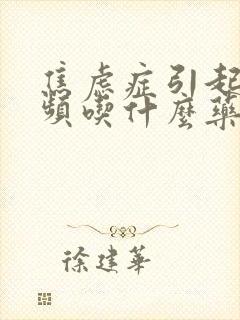 焦虑症引起
頻喫什麼藥
徐建華